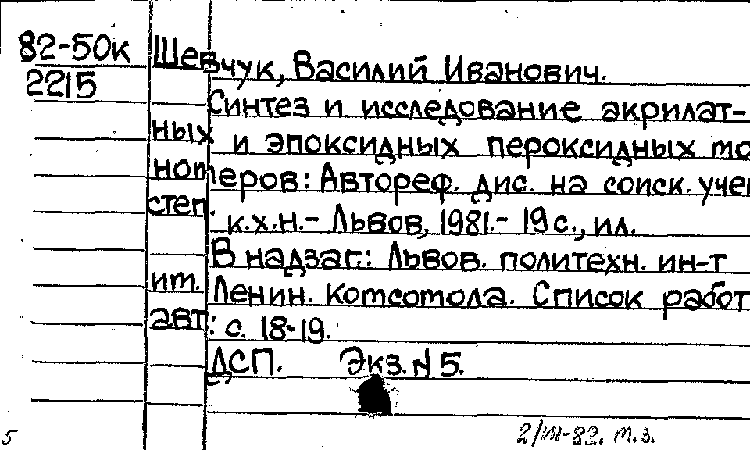 82-50к Шевчук, Василий Иванович.
2215
Синтез и исследование акрилат-
ных и эпоксидных пероксидных мо
номеров: Автореф. дис. на соиск. учен
степ. к.х.н.- Львов, 1981.- 19 с., ил.
В надзаг.: Львов. политехн. ин-т
им. Ленин. Комсомола. Список работ
авт.: с. 18-19.
ДСП. Экз. N 5.
5 2/III-82. т.з.